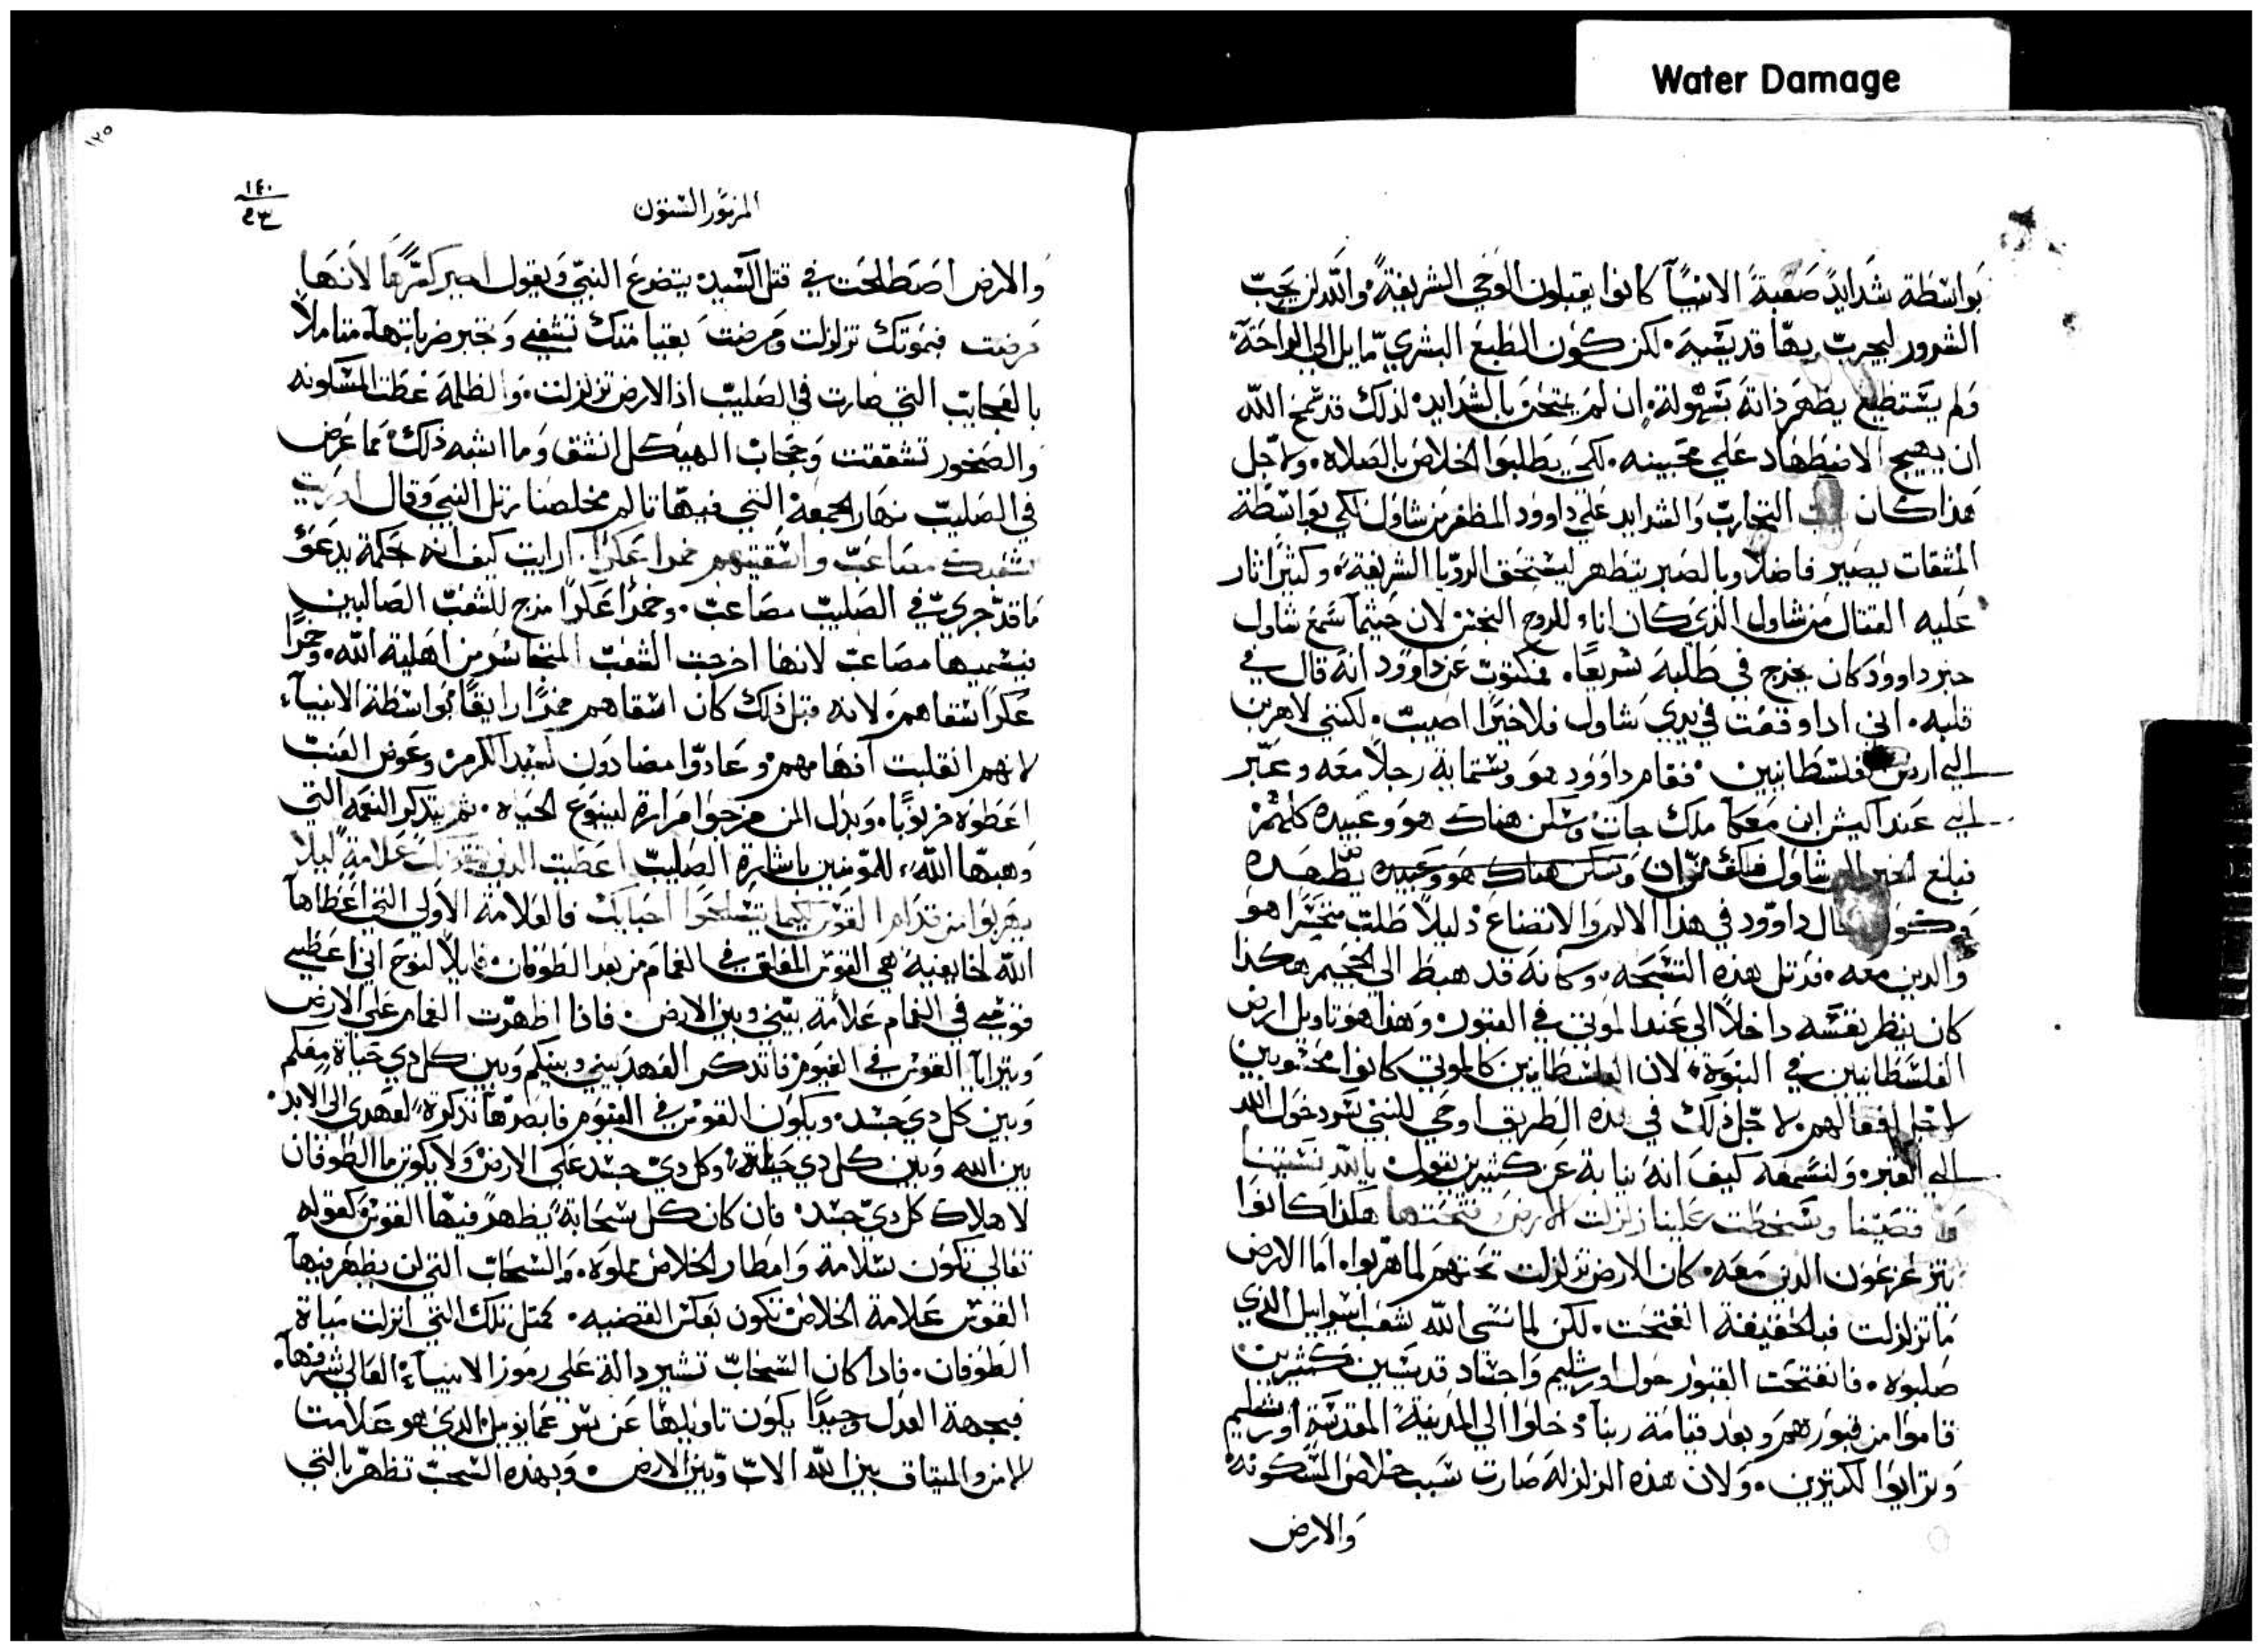 Water Damage
بواسطة شدايد صعبة الانبيآ كانوا يقبلون الوحي الشريفة، والله لن يجب
الشرور ليجرب بها قديسيه. لكن كون الطبع البشري مايل الي الراحة
ولم يستطيع يطهر ذاته بسهولة. ان لم يمتحن بالشدايد، لذلك قد سمح الله
ان يهيج الاضطهاد علي محبينه. لكي يطلبوا الخلاص بالصلاه. ولاجل
هذا كان التجارب والشدايد علي داوود المظفر من شاول لكي بواسطة
المشقات يصير فاضلا وبالصبر يتطهر ليستحق الرويا الشريفة، وكثيرا ثار
عليه القتال من شاول الذي كان اناء للروح النجس لان حيثما سمع شاول
خبر داوود كان يخرج في طلبه سريعا. فمكتوب عن داوود انه قال في
قلبه. اني اداوقعت في يدي شاول فلا خيرا اصيب. لكنني لاهربن
الي ارض فلسطانيين. فقام داوود هو وستماية رجلا معه وعبر
الي عند اكيش ابن معكا ملك جات وسكن هناك هو وعبيده كلهم
فبلغ الخبر الي شاول فكف من ان وسكن هناك هو وعبيده يضطهده
وكون حال داوود في هذا الالم والاتضاع دليلا طلب متحسرا هو
والدين معه. فرتل هذه التسبحه. وكانه قد هبط الي الجحيم هكذا
كان ينظر نفسه داخلا الي عند الموتي في القبور. وهذا هو تاويل ارض
الفلسطانيين في النبوة، لان الفلسطانيين كالموتي كانوا محسوبين
لاجل افعالهم. لاجل ذلك في هذه الطريق اوحي للنبي سر دخول الله
الي القبر. ولنسمعه كيف انه نيابة عن كثيرين يقول يا الله نسيتنا
واقصيتنا وسخطت علينا زلزلت الارض وفتحتها هكذا كانوا
يتزعزعون الدين معه. كان الارض تزلزلت تحتهم لما هربوا. اما الارض
ما تزلزلت فبالحقيقة انفتحت. لكن لما نسي الله شعب اسراييل الذي
صلبوه. فانفتحت القبور حول اورشليم واجساد قديسين كثيرين
قاموا من قبورهم وبعد قيامة ربنا دخلوا الي المدينة المقدسة اورشليم
وترايوا لكثيرين. ولان هذه الزلزلة صارت سبب خلاص المسكونة
والارض
١٢٥
١٤٠
المزمور الستون
والارض اصطلحت في قتل السيد، يتضرع النبي ويقول اجبر كسرها لانها
مرضت فبموتك تزلزلت ومرضت بقيامتك تشفي وتجبر ضرباتها. متاملا
بالعجايب التي صارت في الصليب اذ الارض تزلزلت. والظلمة غطت المسكونه
والصخور تشققت وحجاب الهيكل انشق وما اشبه ذلك مما عرض
في الصليب نهار الجمعة التي فيها تالم مخلصنا رتل النبي وقال اوريت
شعبك مصاعب واسقيتهم خمرا عكرا. ارايت كيف انه بحكمة يدعو
ما قد جري في الصليب مصاعب. وخمرا عكرا مزج للشعب الصالبين
فيسميها مصاعب لانها اخرجت الشعب المتجاسر من اهلية الله. وخمرا
عكرا سقاهم لانه قبل ذلك كان اسقاهم خمرا رايقا بواسطة الانبياء
لانهم انقلبت افهامهم وعادوا مضادون لسيد الكرم وعوض العنب
اعطوه خرنوبا. وبدل المن مزجوا مرارة لينبوع الحياه. ثم يتذكر النعمه التي
وهبها الله، للمومنين باشارة الصليب اعطيت الذين يتقونك علامة ليلا
يهربوا من قدام القوس كيما يتسلحوا احبايك فالعلامة الاولي التي اعطاها
الله لخايفيه هي القوس المعلق في الغمام من بعد الطوفان. قايلا لنوح اني اعطي
قوسي في الغمام علامة بيني وبين الارض. فاذا اظهرت الغمام علي الارض
ويترايا القوس في الغيوم فاتذكر العهد بيني وبينكم وبين كل دي حياة معكم
وبين كل دي جسد. ويكون القوس في الغيوم فابصرها تذكرة لعهدي الي الابد.
بين الله وبين كل دي حياة، وكل دي جسد علي الارض ولا يكون ما الطوفان
لاهلاك كل دي جسد. فان كان كل سحابة يظهر فيها القوس كقوله
تعالي تكون سلامة وامطار الخلاص مملوه. والسحاب التي لن يظهر فيها
القوس علامة الخلاص تكون بعكس القضيه. كمتل تلك التي انزلت مياة
الطوفان. فاذا كان السحاب تشير دالة علي رموز الانبياء العالي شرفها.
فبجهة العدل وجيدا يكون تاويلها عن سر عمانوييل الذي هو علامت
الامن والميتاق بين الله الاب وبين الارض. وبهذه السحب تظهر بالتي